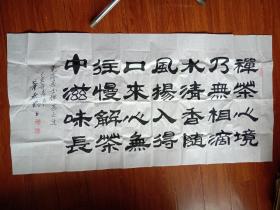 禪茶心境
乃無相滴
水清香隨
風揚入得
口來心無
往慢解茶
中滋味長